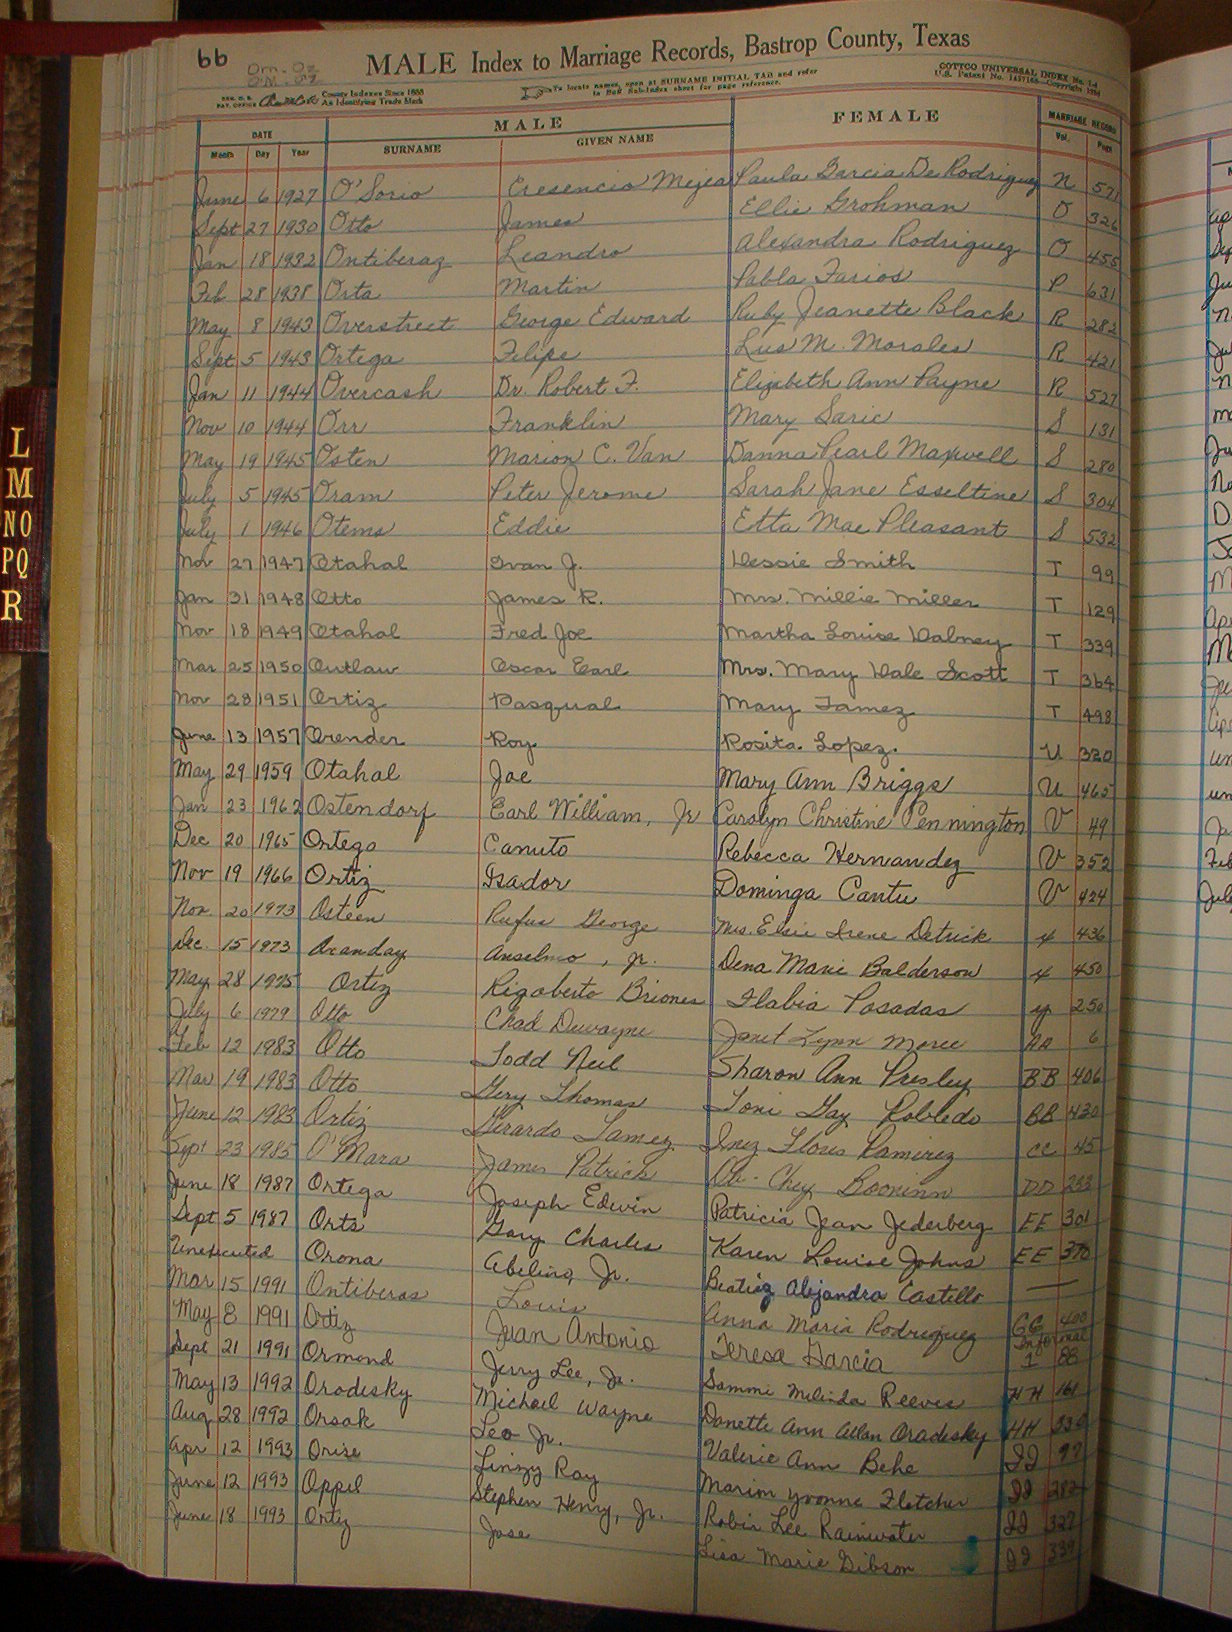 66
Orn-Oz
MALE Index to Marriage Records, Bastrop County, Texas
County Indexes Since 1888
An Identifying Trade Mark
To locate names, open at SURNAME INITIAL TAB and refer
to Sub-Index sheet for page reference.
COTTCO UNIVERSAL INDEX No. 1-4
U.S. Patent No. Copyright
DATE MALE FEMALE MARRIAGE RECORD
Month Day Year SURNAME GIVEN NAME Vol. Page
June 6 1927 O'Sorio Eresencio Mejea Paula Garcia De Rodriguez N 571
Sept 27 1930 Otto James Ellie Grohman O 326
Jan 18 1932 Ontiberaz Leandro Alexandra Rodriguez O 455
Feb 28 1938 Orta Martin Pabla Farios P 631
May 8 1943 Overstreet George Edward Ruby Jeanette Black R 282
Sept 5 1943 Ortega Felipe Lus M. Morales R 421
Jan 11 1944 Overcash Dr. Robert F. Elizibeth Ann Payne R 527
Nov 10 1944 Orr Franklin Mary Saric S 131
May 19 1945 Osten Marion C. Van Danna Pearl Maxwell S 280
July 5 1945 Oram Peter Jerome Sarah Jane Esseltine S 304
July 1 1946 Otems Eddie Etta Mae Pleasant S 532
Nov 27 1947 Otahal Ivan J. Dessie Smith T 99
Jan 31 1948 Otto James R. Mrs. Millie Miller T 129
Nov 18 1949 Otahal Fred Joe Martha Louise Dabney T 339
Mar 25 1950 Outlaw Oscar Earl Mrs. Mary Dale Scott T 364
Nov 28 1951 Ortiz Pasqual Mary Tamez T 498
June 13 1957 Orender Roy Rosita Lopez. U 320
May 29 1959 Otahal Joe Mary Ann Briggs U 465
Jan 23 1962 Ostendorf Earl William, Jr Carolyn Christine Pennington V 49
Dec 20 1965 Ortego Canuto Rebecca Hernandez V 352
Nov 19 1966 Ortiz Isador Dominga Cantu V 424
Nov. 20 1973 Osteen Rufus George Mrs. Elsie Irene Detrick X 436
Dec. 15 1973 Oranday Anselmo, Jr. Dena Marie Balderson X 450
May 28 1975 Ortiz Rigoberto Briones Flabia Posadas Y 250
July 6 1979 Otto Chad Dewayne Janet Lynn Maree AA 6
Feb 12 1983 Otto Todd Neil Sharon Ann Presley BB 406
Mar 19 1983 Otto Gery Thomas Toni Gay Robledo BB 430
June 12 1983 Ortiz Gerardo Tamez Inez Flores Ramirez CC 45
Sept 23 1985 O'Mara James Patrick Chey Booninn DD 233
June 18 1987 Ortega Joseph Edwin Patricia Jean Jederberg EE 301
Sept 5 1987 Orts Gary Charles Karen Louise Johns EE 370
Unexecuted Orona Abelino, Jr. Beatriz Alejandra Castillo —
Mar 15 1991 Ontiberas Louis Anna Maria Rodriguez GG 400
May 8 1991 Ortiz Juan Antonio Teresa Garcia Informal 1 88
Sept 21 1991 Ormond Jerry Lee, Jr. Sammi Melinda Reeves HH 161
May 13 1992 Oradesky Michael Wayne Danette Ann Allan Oradesky HH 330
Aug 28 1992 Orsak Leo Jr. Valerie Ann Behe II 97
Apr 12 1993 Orise Linzy Ray Marion Yvonne Fletcher II 282
June 12 1993 Oppel Stephen Henry, Jr. Robin Lee Rainwater II 327
June 18 1993 Ortiz Jose Lisa Marie Gibson II 339
L
M
NO
PQ
R